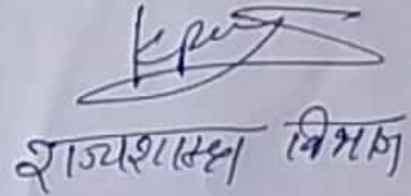 राज्यशास्त्र विभाग